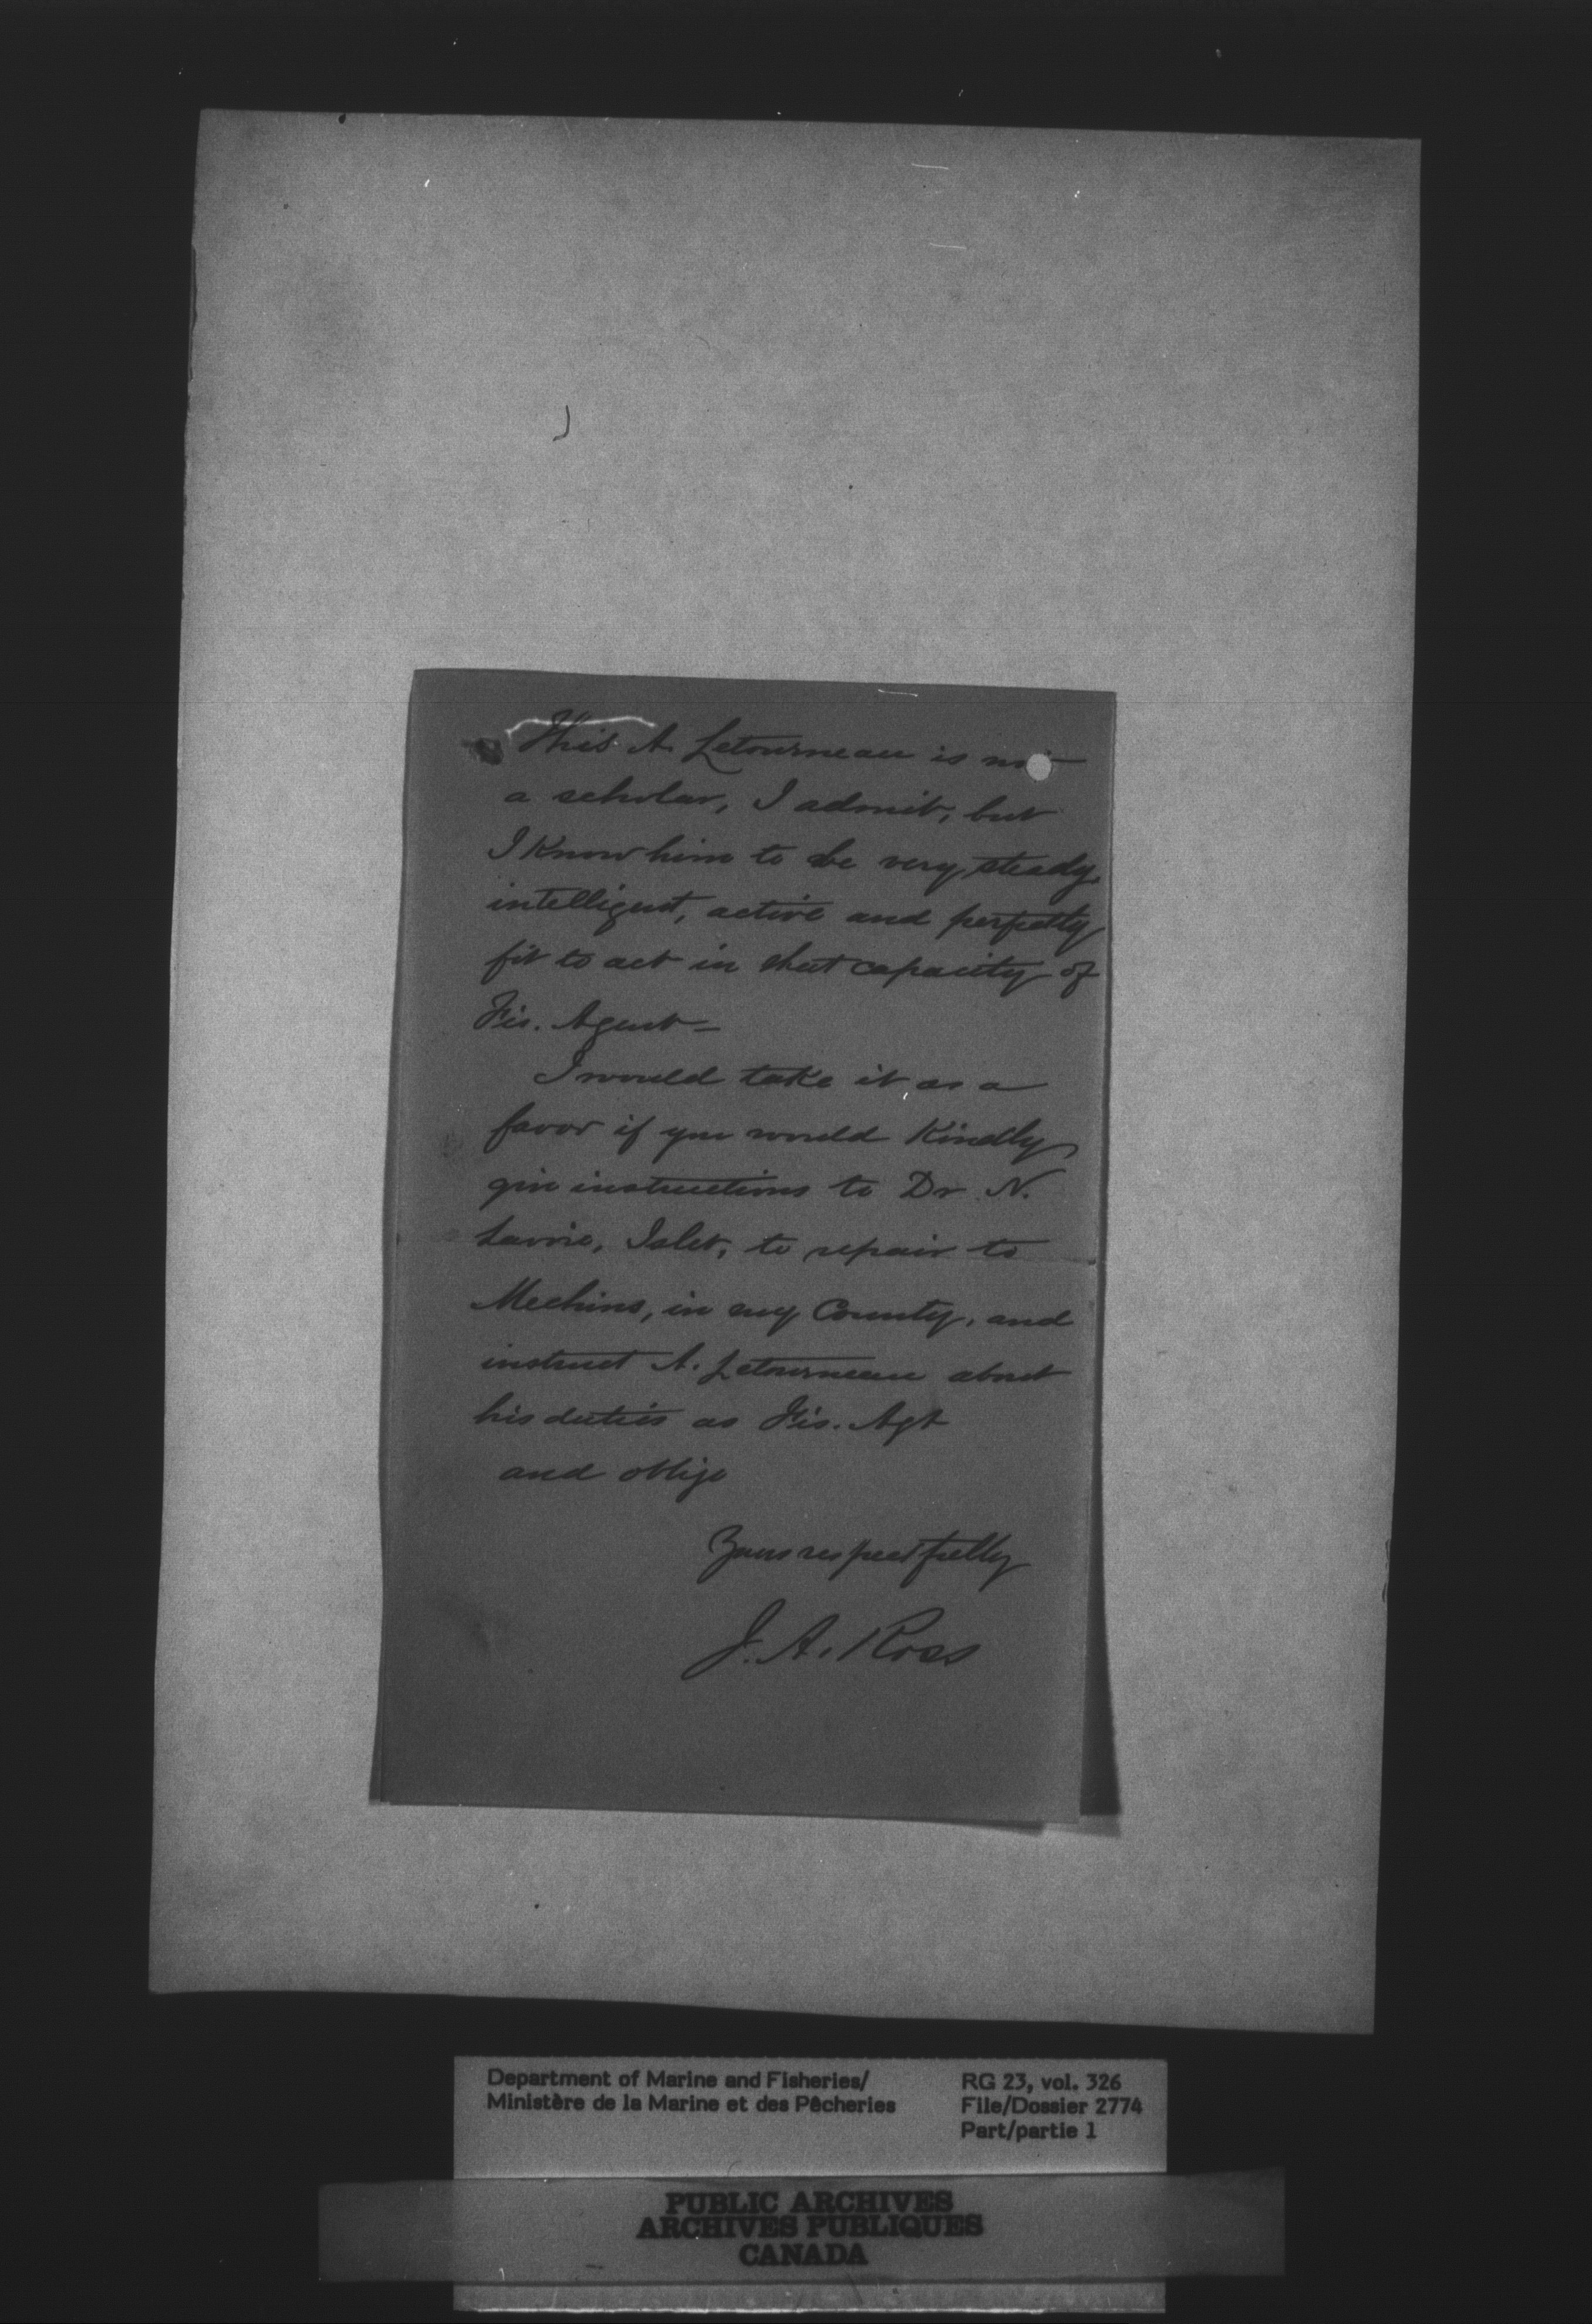 This A. Letourneau is not
a scholar, I admit, but
I Know him to be very steady,
intelligent, active and perfectly
fit to act in that capacity of
Fis. Agent —
I would take it as a
favor if you would Kindly
give instructions to Dr. N.
Lavoie, Islet, to repair to
Mechins, in my County, and
instruct A. Letourneau about
his duties as Fis. Agt
and oblige
Yours respectfully
J. A. Ross
Department of Marine and Fisheries/
Ministère de la Marine et des Pêcheries
RG 23, vol. 326
File/Dossier 2774
Part/partie 1
PUBLIC ARCHIVES
ARCHIVES PUBLIQUES
CANADA